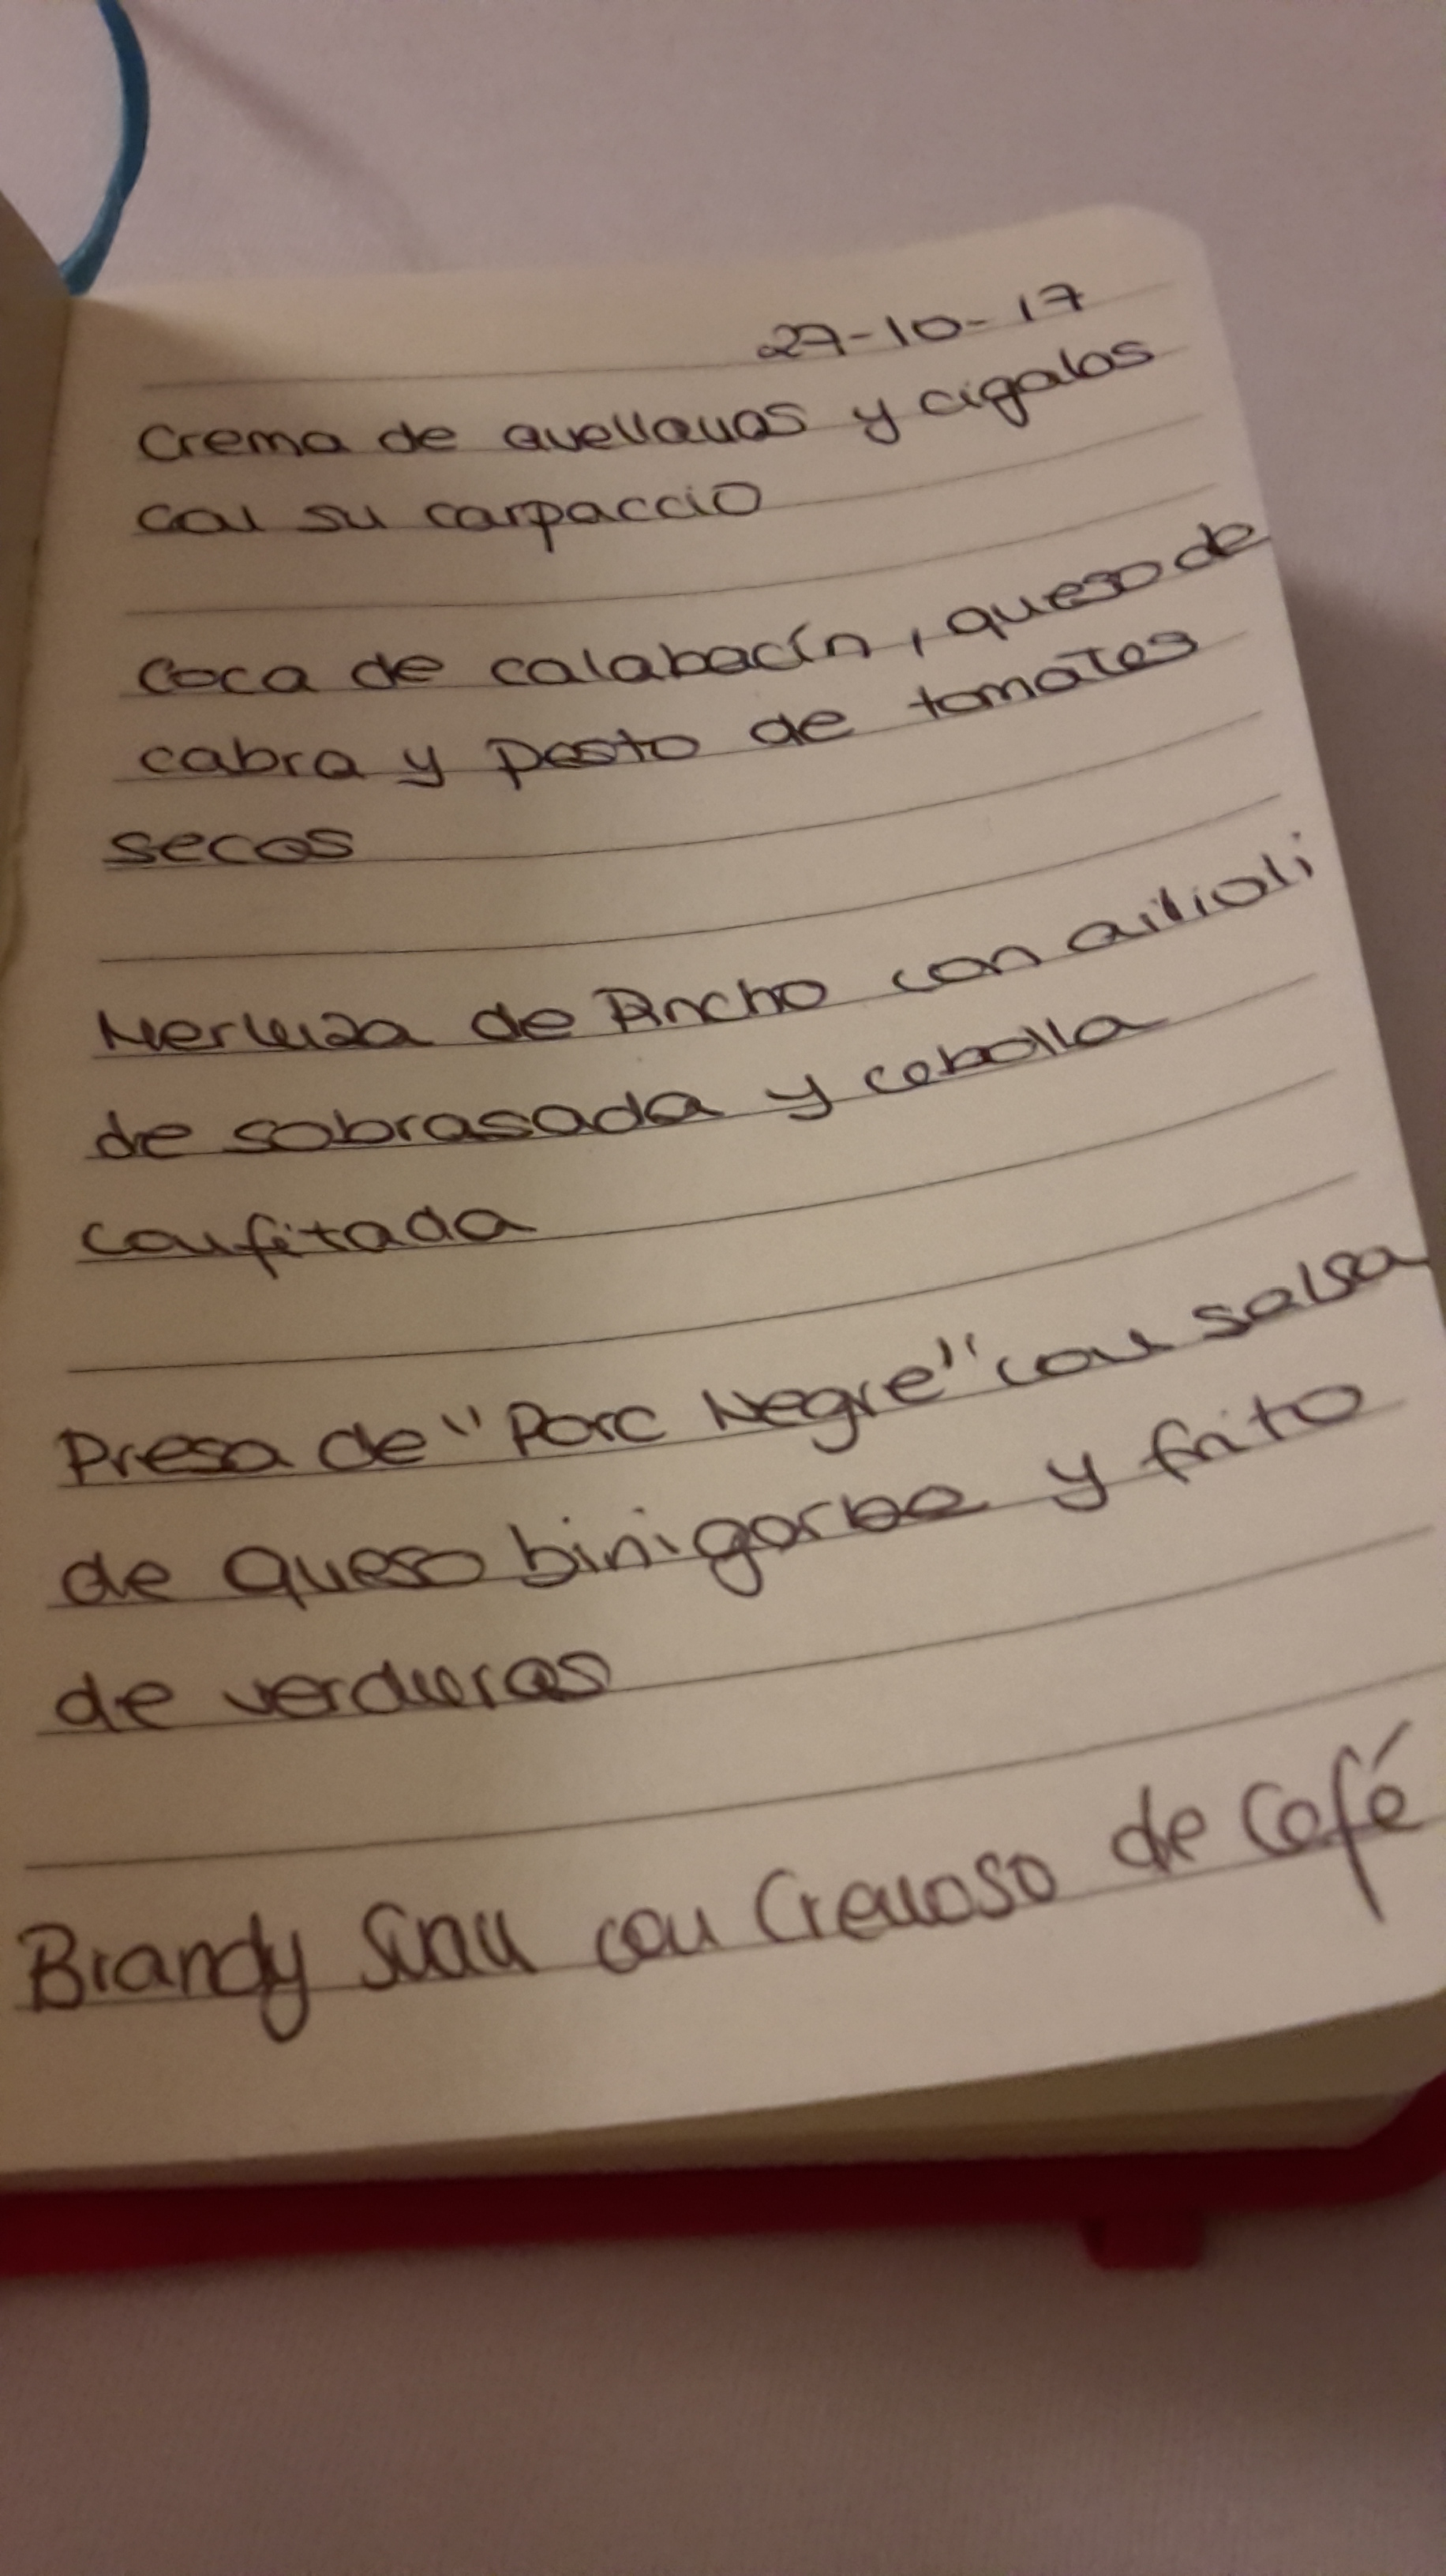 27-10-17
Crema de avellanas y cigalas
con su carpaccio
Coca de calabacín, queso de
cabra y pesto de tomates
secos
Merluza de Pincho con ailioli
de sobrasada y cebolla
confitada
Presa de "Porc Negre" con salsa
de queso binigarbe y frito
de verduras
Brandy Suau con Cremoso de Café